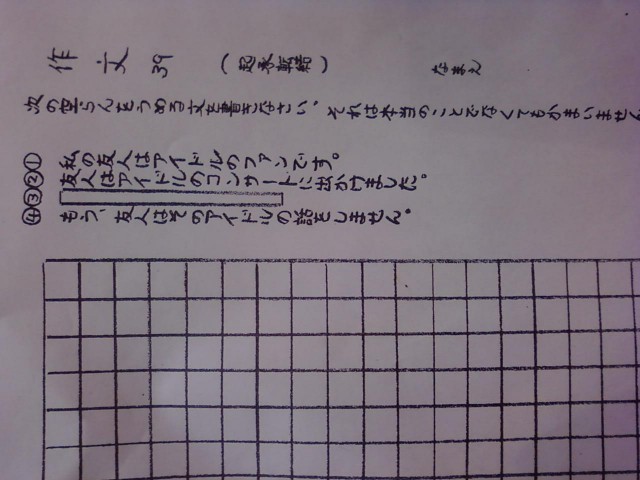 作文 39 （起承転結） なまえ
次の空らんをうめる文を書きなさい、それは本当のことでなくてもかまいません
① 私の友人はアイドルのファンです。
② 友人はアイドルのコンサートに出かけました。
③
④ もう、友人はそのアイドルの話をしません。